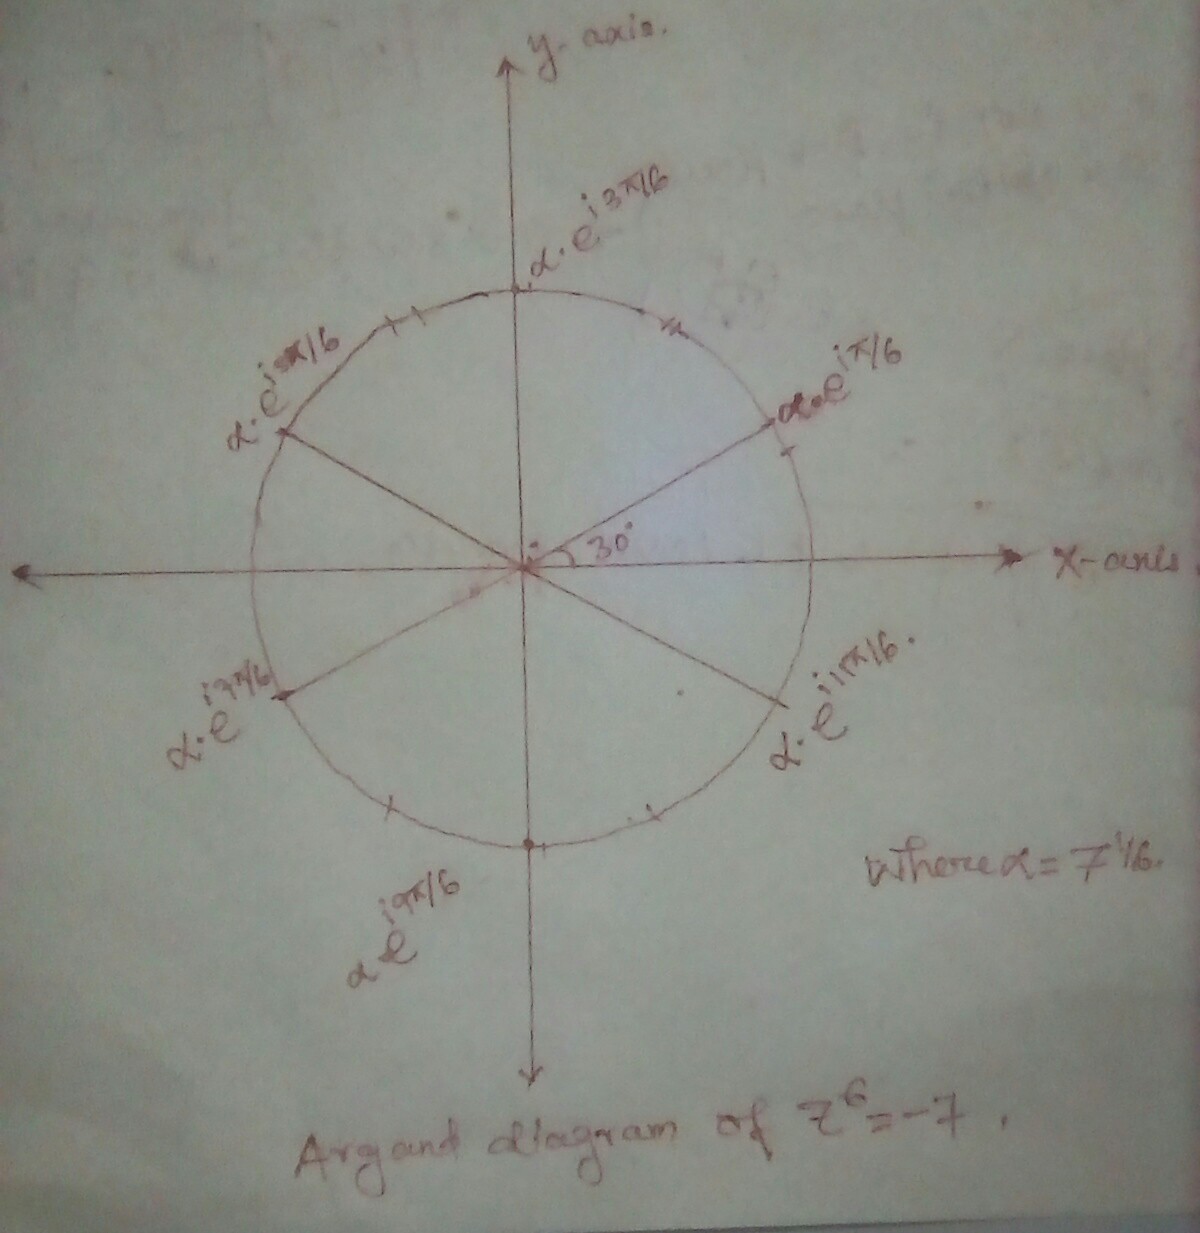 y-axis.
α·e^i3π/6
α·e^i5π/6
α·e^iπ/6
30°
x-axis.
α·e^i7π/6
α·e^i11π/6.
α·e^i9π/6
Where α = 7^1/6.
Argand diagram of z^6=-7.